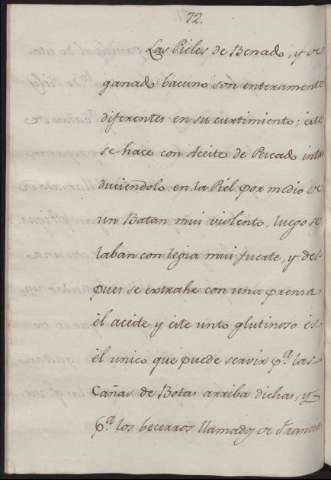 72.
Las Pieles de Benado, y de
ganado bacuno son enteramente
diferentes en su curtimiento; este
se hace con Aceite de Pescado intro
duciendolo en la Piel por medio de
un Batan mui violento, luego se
laban con legia mui fuerte, y des
pues se extrahe con una prensa
el aceite y este unto glutinoso es
el unico que puede servir p.ª las
Cañas de Botas arriba dichas, y
p.ª los becerros llamados de